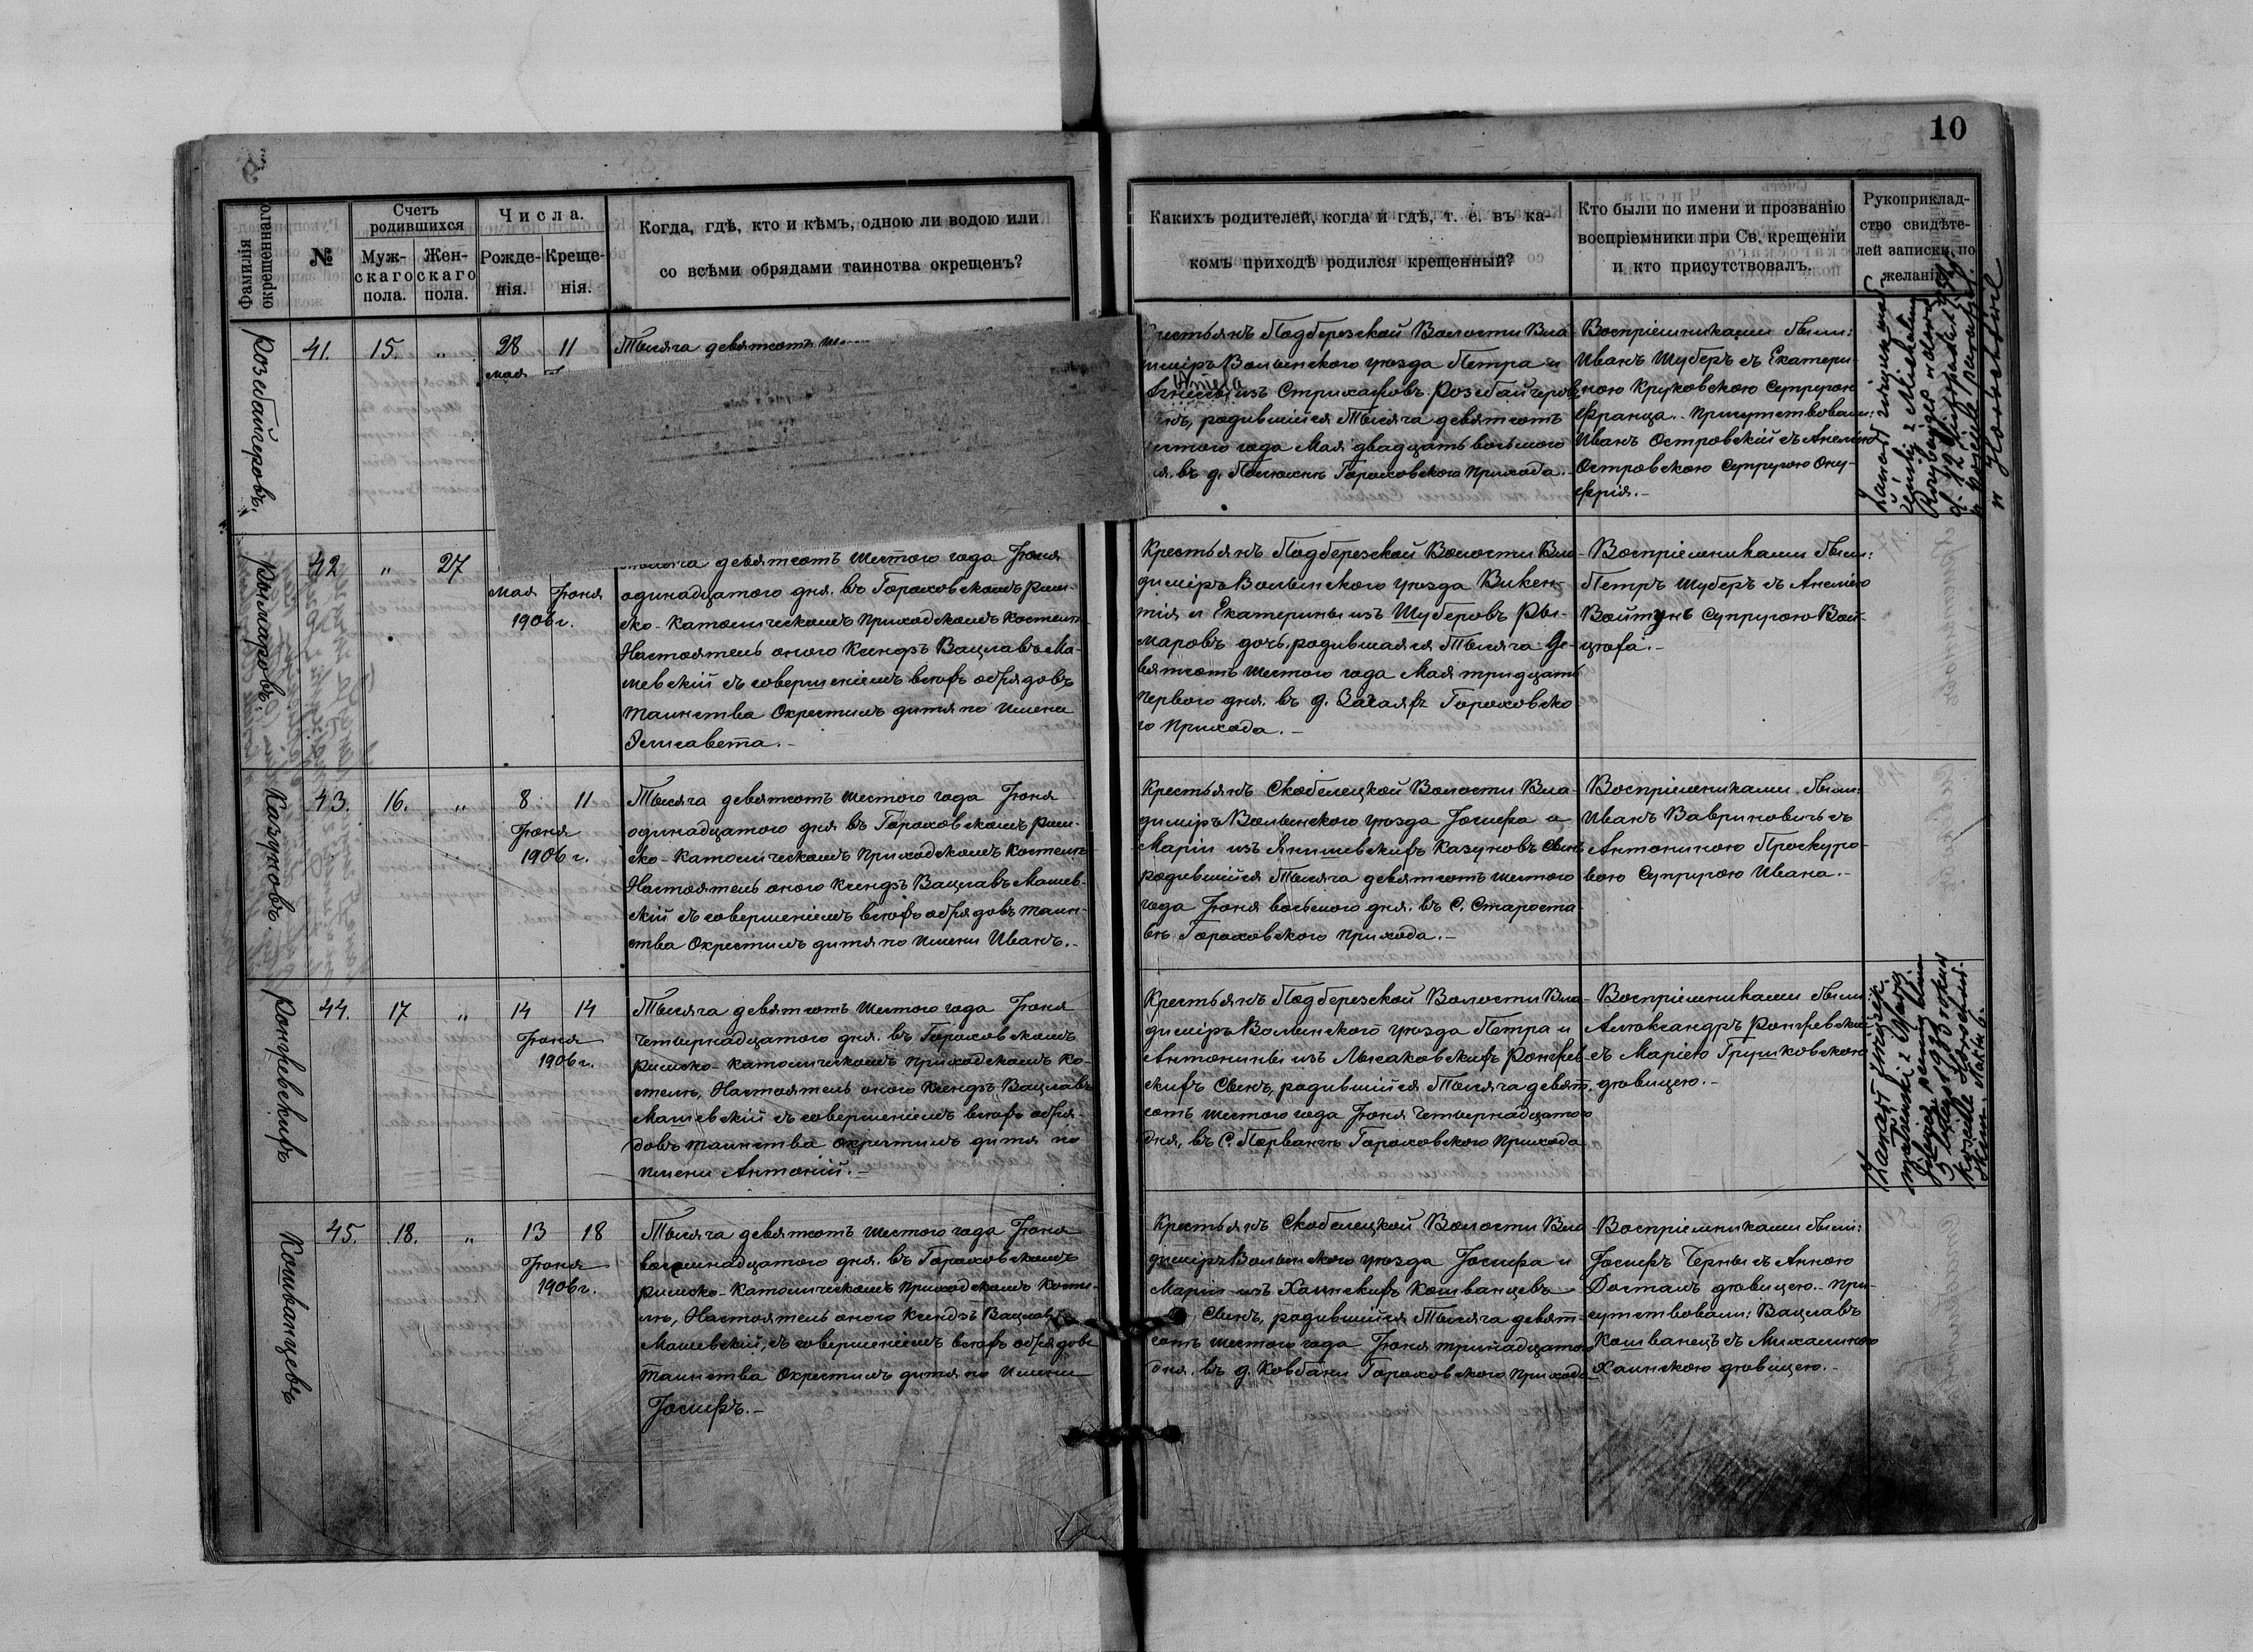 10
Фамилія окрещеннаго
№
Счетъ родившихся
Муж-скаго пола.
Жен-скаго пола.
Числа.
Рожде-нія.
Креще-нія.
Когда, гдѣ, кто и кѣмъ, одною ли водою или
со всѣми обрядами таинства окрещенъ?
Какихъ родителей, когда и гдѣ, т. е. въ ка-
комъ приходѣ родился крещенный?
Кто были по имени и прозванію
воспріемники при Св. крещеніи
и кто присутствовалъ.
Рукоприклад-
ство свидѣте-
лей записки, по
желанію.
Розебайгеровъ.
41. 15. " 28 11
мая
Тысяча девятсотъ
Подберезской Волости Вла-
Волынского уѣзда Петра и
Аньела
изъ Стрихафовъ Розебайгеровъ
родившійся Тысяча девятсотъ
года Мая двадцать восьмого
въ д. Полюхнѣ Гороховского прихода.-
Воспріемниками были:
Иванъ Шуберъ съ Екатери-
ною Круковскою супругою
Франца.- Присутствовали:
Иванъ Островскій съ Анелію
Островскою супругою Ону-
фрія.-
Рымаровъ.
42 " 27
мая Іюня
1906 г.
девятсотъ шестого года Іюня
одинадцатого дня. въ Гороховскомъ рим-
ско-католическомъ приходскомъ костелѣ
Настоятель оного Ксендзъ Вацлавъ Ма-
шевскій съ совершеніемъ всѣхъ обрядовъ
таинства окрестилъ дитя по имени
Элисавета.-
Крестьянъ Подберезской Волости Вла-
диміръ Волынского уѣзда Викен-
тія и Екатерины изъ Шуберовъ Ры-
маровъ дочь, родившаяся Тысяча де-
вятсотъ шестого года Мая тридцать
первого дня. въ д. Загаяхъ Гороховско
го прихода.-
Воспріемниками были:
Петръ Шуберъ съ Анелію
Войтунъ супругою Вой-
цѣха.-
Казуковъ.
43. 16. " 8 11
Іюня
1906 г.
Тысяча девятсотъ шестого года Іюня
одинадцатого дня въ Гороховскомъ рим-
ско-католическомъ приходскомъ костелѣ
Настоятель оного Ксендзъ Вацлавъ Машев-
скій съ совершеніемъ всѣхъ обрядовъ таин-
ства окрестилъ дитя по имени Иванъ.-
Крестьянъ Скобелецкой Волости Вла-
диміръ Волынского уѣзда Іосифа и
Маріи изъ Янишевскихъ Казуковъ сынъ
родившійся Тысяча девятсотъ шестого
года Іюня восьмого дня. въ С. Староста-
вѣ Гороховского прихода.-
Воспріемниками были:
Иванъ Вавриновичъ съ
Антониною Проскуро-
вою супругою Ивана.-
44. 17 " 14 14
Іюня
1906 г.
Тысяча девятсотъ шестого года Іюня
четырнадцатого дня. въ Гороховскомъ
римско-католическомъ приходскомъ ко-
стелѣ, Настоятель оного Ксендзъ Вацлавъ
Машевскій съ совершеніемъ всѣхъ обря-
довъ таинства окрестилъ дитя по
имени Антоній.-
Крестьянъ Подберезской Волости Вла-
диміръ Волынского уѣзда Петра и
Антонины изъ
сынъ, родившійся Тысяча девят-
сотъ шестого года Іюня четырнадцатого
дня, въ С. Перванчѣ Гороховского прихода
Воспріемниками были
Александръ
съ Маріею Грушковскою
дѣвицею.-
Кошванцевъ
45. 18. " 13 18
Іюня
1906 г.
Тысяча девятсотъ шестого года Іюня
восемнадцатого дня. въ Гороховскомъ
римско-католическомъ приходскомъ косте-
лѣ, Настоятель оного Ксендзъ Вацлавъ
Машевскій, съ совершеніемъ всѣхъ обрядовъ
таинства окрестилъ дитя по имени
Іосифъ.-
Крестьянъ Скобелецкой Волости Вла
диміръ Волынского уѣзда Іосифа и
Маріи изъ Хаинскихъ Кошванцевъ
сынъ, родившійся Тысяча девят-
сотъ шестого года Іюня тринадцатого
дня. въ д. Ковбани Гороховского прихода
Воспріемниками были:
Іосифъ Черны съ Анною
Досталъ дѣвицею.- При-
сутствовали: Вацлавъ
Кошванецъ съ Михалиною
Хаинскою дѣвицею.-